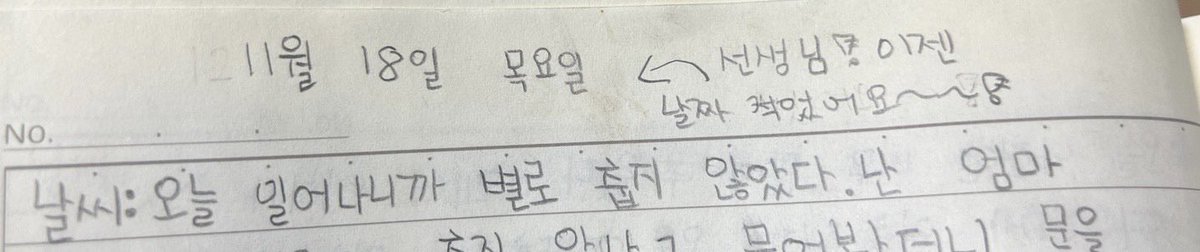 11월 18일 목요일 ← 선생님 이젠
날짜 적었어요~~
NO.
날씨: 오늘 일어나니까 별로 춥지 않았다. 난 엄마
문을